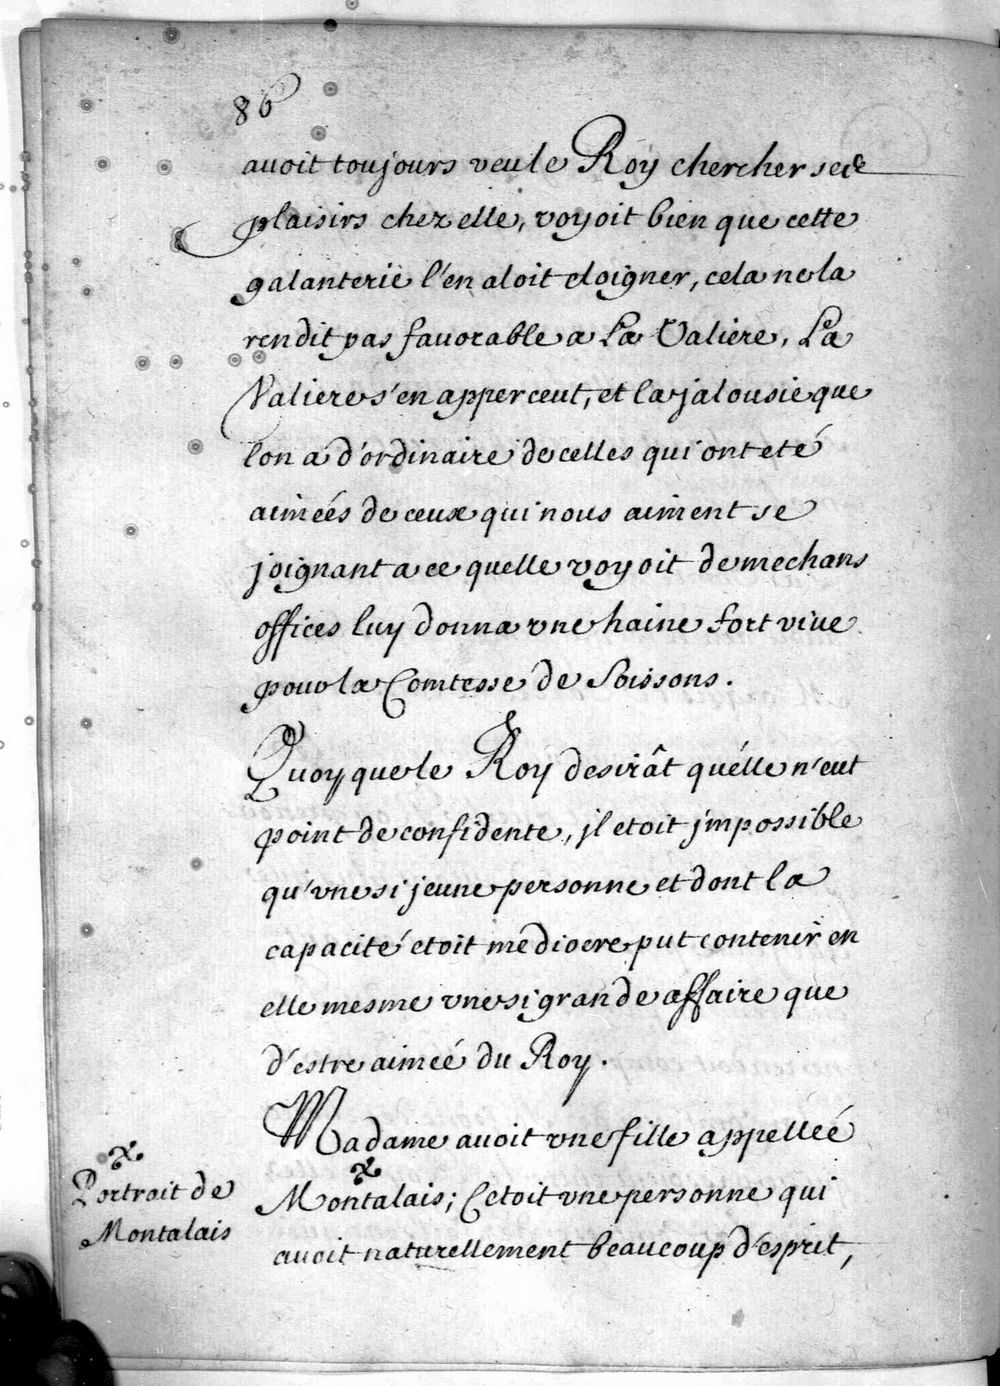 86
avoit toujours veu le Roy chercher ses
plaisirs chez elle, voyoit bien que cette
galanterie l'en aloit eloigner, cela ne la
rendit pas favorable a La Valiere, La
Valiere s'en apperceut, et la jalousie que
lon a d'ordinaire de celles qui ont eté
aimeés de ceux qui nous aiment se
joignant a ce quelle voyoit de mechans
offices luy donna vne haine fort viue
pour la Comtesse de Soissons.
Quoy que le Roy desirât qu'élle n'eut
point de confidente, jl etoit jmpossible
qu'vne si jeune personne et dont la
capacité etoit mediocre put contenir en
elle mesme vne si grande affaire que
d'estre aimeé du Roy.
Madame avoit vne fille appelleé
Montalais; Cetoit vne personne qui
avoit naturellement beaucoup d'esprit,
Portrait de
Montalais